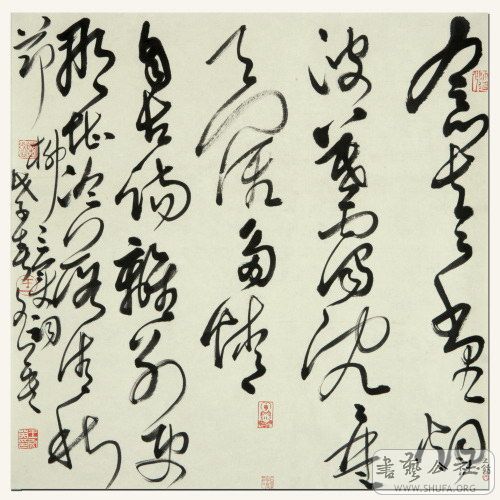 念去去千里烟
波暮靄沉沉楚
天阔多情
自古伤離别更
那堪冷落清秋
节
柳三变词
戊子春
書藝公社
WWW.SHUFA.ORG